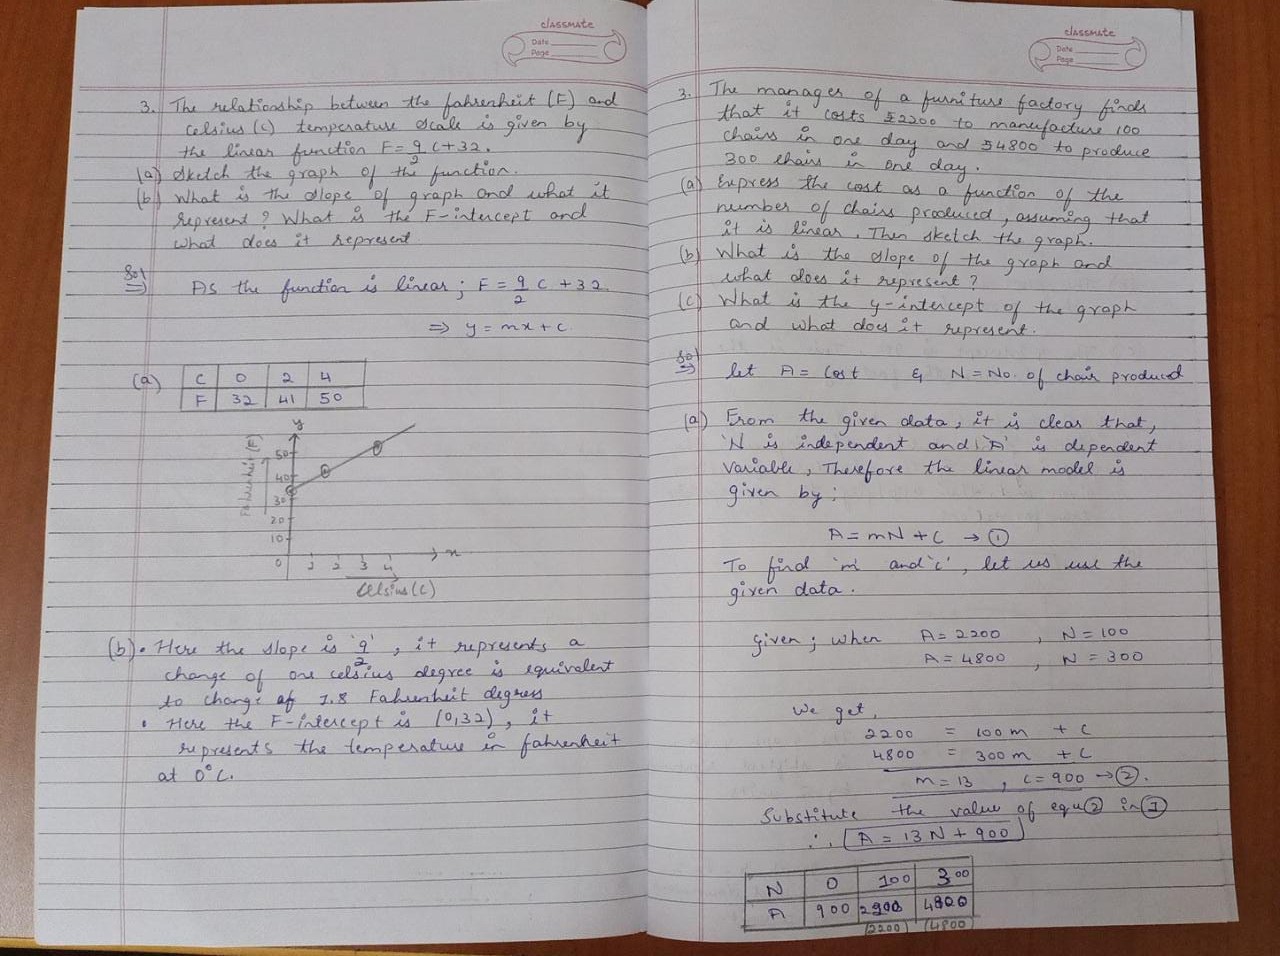 classmate
Date
Page
3. The relationship between the fahrenheit (F) and
Celsius (c) temperature scale is given by
the linear function F = 9/2 C + 32.
(a) Sketch the graph of the function.
(b) What is the slope of graph and what it
represent? What is the F-intercept and
what does it represent
Sol
As the function is linear; F = 9/2 C + 32
⇒ y = mx + c
(a) C 0 2 4
F 32 41 50
y
Fahrenheit (F)
50
40
30
20
10
0 1 2 3 4 x
Celsius (C)
(b) • Here the slope is '9/2', it represents a
change of one celsius degree is equivalent
to change of 1.8 Fahrenheit degress
• Here the F-intercept is (0,32), it
represents the temperature in fahrenheit
at 0°C.
classmate
Date
Page
3. The manager of a furniture factory finds
that it costs $2200 to manufacture 100
chairs in one day and $4800 to produce
300 chairs in one day.
(a) Express the cost as a function of the
number of chairs produced, assuming that
it is linear. Then sketch the graph.
(b) What is the slope of the graph and
what does it represent?
(c) What is the y-intercept of the graph
and what does it represent.
Sol
let A = Cost & N = No. of chair produced
(a) From the given data, it is clear that,
'N is independent and 'A' is dependent
variable, Therefore the linear model is
given by;
A = mN + C → ①
To find 'm' and 'c', let us use the
given data.
given; when A = 2200 , N = 100
A = 4800 , N = 300
We get,
2200 = 100 m + C
4800 = 300 m + C
m = 13 , C = 900 → ②.
Substitute the value of equ ② in ①
∴ A = 13 N + 900
N 0 100 300
A 900 2200 4800
(2200) (4800)